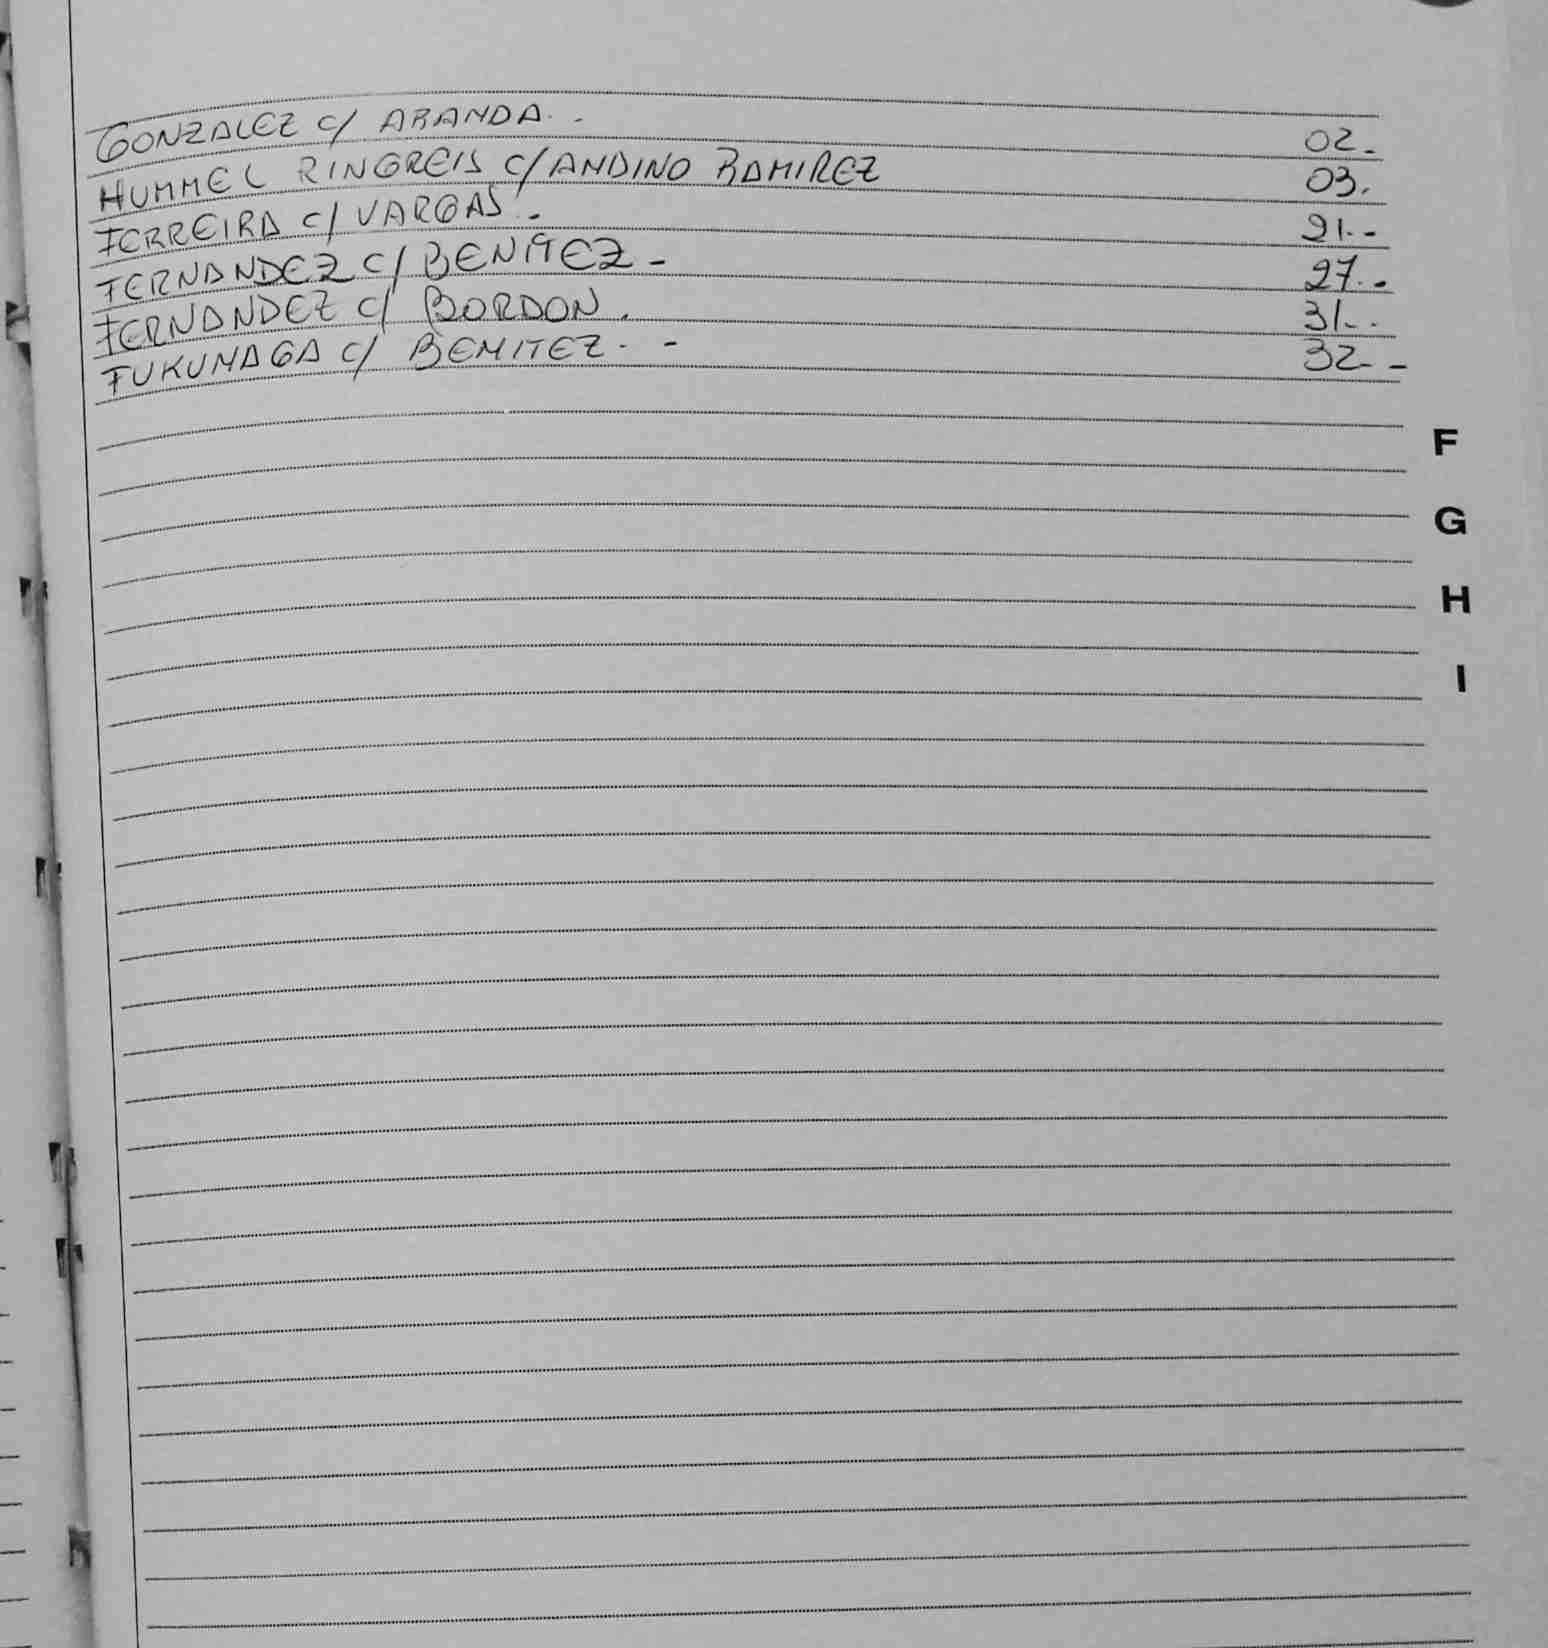 GONZALEZ c/ ARANDA. - 02.
HUMMEL RINGREIS c/ ANDINO RAMIREZ 03.
FERREIRA c/ VARGAS. 21.-
FERNANDEZ c/ BENITEZ - 27.-
FERNANDEZ c/ BORDON. 31-.
FUKUNAGA c/ BENITEZ. - 32--
F
G
H
I